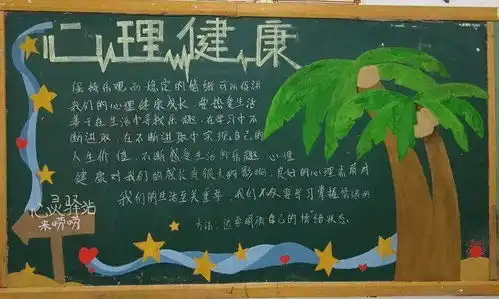 心理健康
保持乐观而稳定的情绪可以促进
我们的心理健康成长，要热爱生活
善于在生活中寻找乐趣，在学习中不
断进取，在不断进取中实现自己的
人生价值，不断感受生活的乐趣，心理
健康对我们的成长有很大的影响，良好的心理素质对
我们的生活至关重要，我们不仅要学习掌握情绪的
方法，还要明确自己的情绪状态.
心灵驿站
来唠唠